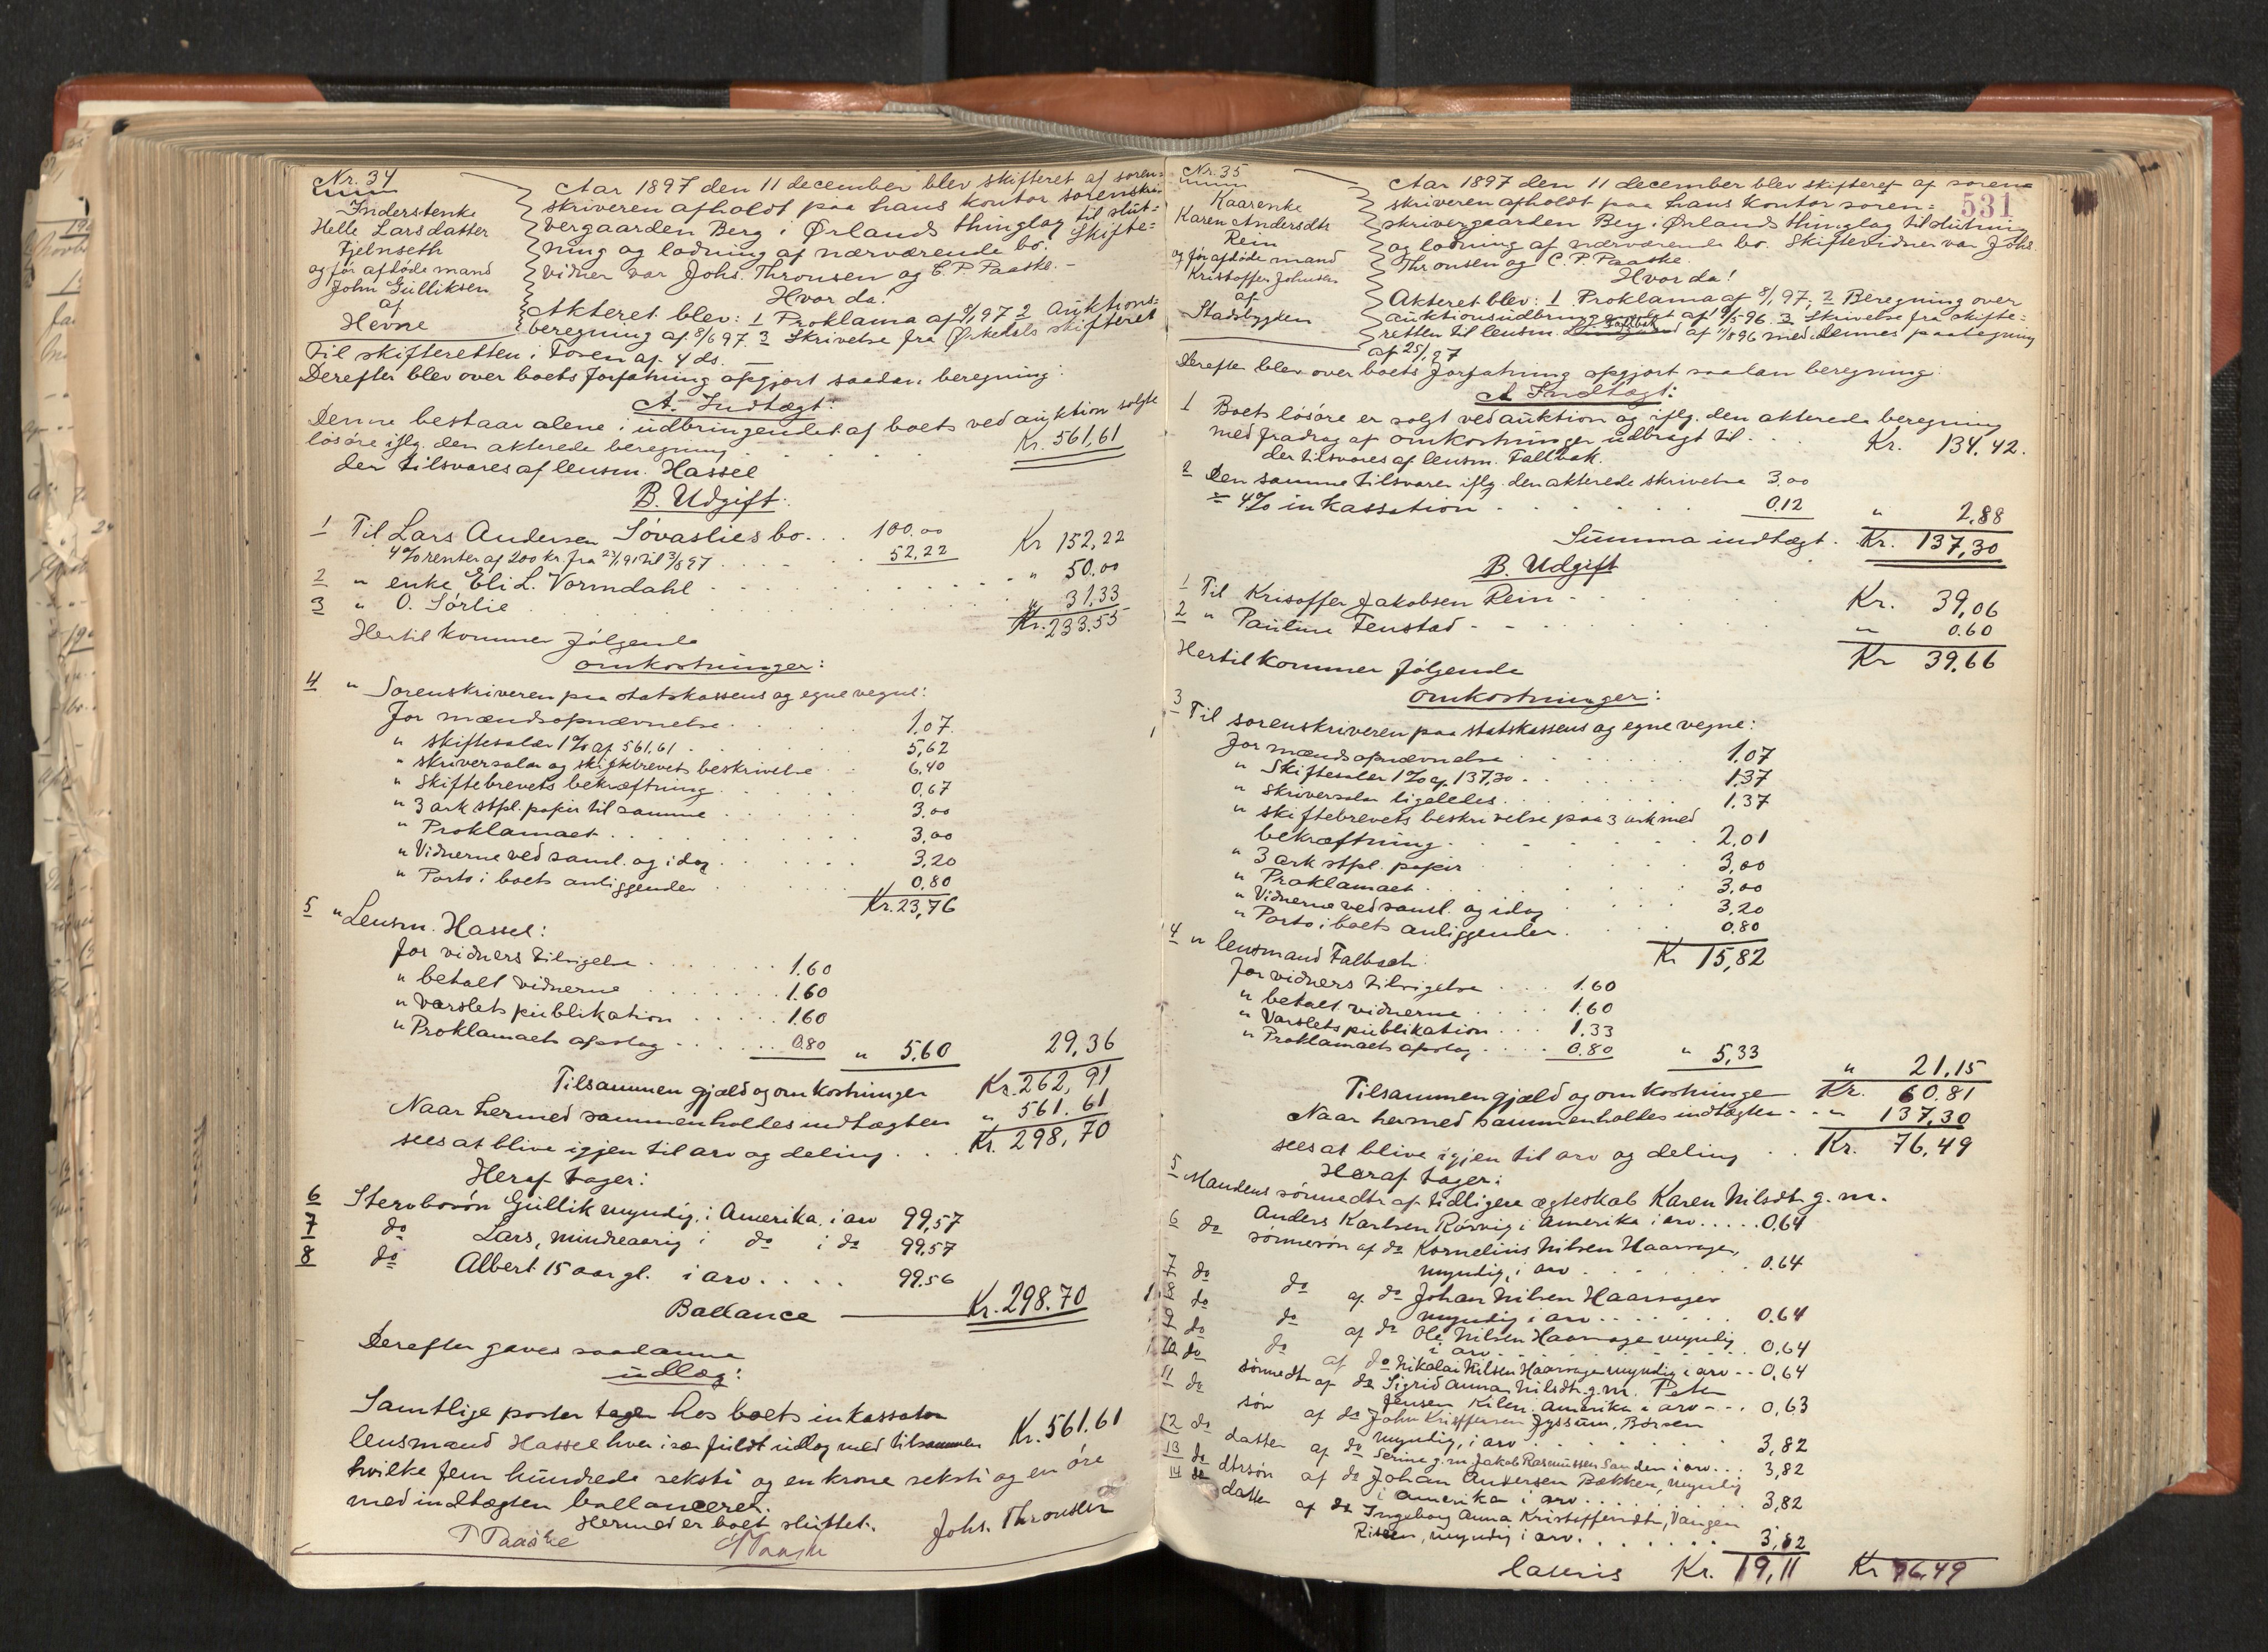 Nr. 34
Inderstenke
Helle Larsdatter
Fjelnseth
og før afdøde mand
John Gulliksen
af
Hevne
Aar 1897 den 11 december blev skifteret af soren-
skriveren afholdt paa hans kontor sorenskri
vergaarden Berg i Ørlands thinglag til slut-
ning og lodning af nærværende bo. Skifte-
vidner var Johs. Thronsen og C. P. Paaske. -
Hvorda!
Akteret blev: 1 Proklama af 8/1 97 2 Auktions-
beregning af 8/6 97 3 Skrivelse fra Ørkedals skifteret
til skifteretten i Fosen af 4 ds. -
Derefter blev over boets forfatning opgjort saadan beregning:
A. Indtægt:
Denne bestaar alene i udbringendet af boets ved auktion solgte
løsøre iflg. den akterede beregning . . . Kr. 561,61
der tilsvares af lensm. Hassel
B. Udgift:
1 Til Lars Andersen Sovaslies bo . . 100.00
4% renter af 200 kr. fra 23/1 91 til 3/8 97 . . . 52,22 Kr 152,22
2 " enke Eli L. Vormdahl . . . " 50.00
3 " O. Sørlie . . . " 31,33
Kr. 233.55
Hertil kommer følgende
omkostninger:
4 " Sorenskriveren paa statskassens og egne vegne:
for mændsopnævnelse . . . 1.07.
" skiftesalær 1% af 561,61 . . . 5,62
" skriversalær og skiftebrevets beskrivelse . . 6,40
" Skiftebrevets bekræftning . . . 0,67
" 3 ark stpl. papir til samme . . . 3,00
" Proklamaet . . . 3,00
" Vidnerne ved saml. og idag . . . 3,20
" Porto i boets anliggender . . . 0,80
Kr. 23,76
5 " Lensm. Hassel:
for vidners tilsigelse . . . 1.60
" betalt vidnerne . . . 1.60
" varslets publikation . . . 1.60
" Proklamaets opslag . . . 0.80 " 5.60 29,36
Tilsammen gjæld og omkostninger Kr. 262,91
Naar hermed sammenholdes indtægten " 561.61
sees at blive igjen til arv og deling . . . Kr. 298,70
Heraf tager:
6 Stervbosøn Gullik myndig, i Amerika, i arv 99,57
7 do Lars, mindreaarig i do i do 99,57
8 do Albert 15 aar gl. i arv . . . . 99.56
Ballance Kr. 298.70
Derefter gaves saadanne
udlæg:
Samtlige poster tager hos boets inkassator
lensmand Hassel hver især fuldt udlæg med tilsammen Kr. 561.61
hvilke fem hundrede seksti og en krone seksti og en øre
med indtægten ballancerer.
Hermed er boet sluttet.
P Paaske Johs. Thronsen
531
Nr. 35
Kaarenke
Karen Andersdtr
Rein
og før afdøde mand
Kristoffer Johnsen
af
Stadsbygden
Aar 1897 den 11 december blev skifteret af soren-
skriveren afholdt paa hans kontor soren-
skrivergaarden Berg i Ørlands thinglag til slutning
og lodning af nærværende bo. Skiftevidner var Johs
Thronsen og C. P. Paaske.
Hvorda!
Akteret blev: 1 Proklama af 8/1 97; 2 Beregning over
auktionsudbringendet af 19/5 96. 3 Skrivelse fra skifte-
retten til lensm. Falbak af 11/8 96 med dennes paategning
af 25/1 97
Derefter blev over boets forfatning opgjort saadan beregning:
A Indtægt:
1 Boets løsøre er solgt ved auktion og iflg. den akterede beregning
med fradrag af omkostninger udbragt til . . Kr. 134.42.
der tilsvares af lensm. Fallbak.
2 Den samme tilsvarer iflg. den akterede skrivelse 3,00
÷ 4% inkassation . . . 0.12 " 2,88
Summa indtægt . Kr. 137,30
B. Udgift
1 Til Krisoffer Jakobsen Rein . . . Kr. 39,06
2 " Pauline Fenstad . . . " 0.60
Hertil kommer følgende Kr 39,66
omkostninger:
3 Til sorenskriveren paa statskassens og egne vegne:
for mændsopnævnelse . . . 1,07
" Skiftesalær 1% af 137,30 . . . 1.37
" skriversalær ligeledes . . . 1.37
" skiftebrevets beskrivelse paa 3 ark med
bekræftning . . . 2.01
" 3 ark stpl. papir . . . 3,00
" Proklamaet . . . 3,00
" Vidnerne ved saml. og idag . . . 3,20
" Porto i boets anliggender . . . 0.80
Kr 15,82
4 " lensmand Falbach:
for vidners tilsigelse . . . 1.60
" betalt vidnerne . . . 1.60
" Varslets publikation . . . 1.33
" Proklamaets opslag . . . 0.80 " 5,33 " 21,15
Tilsammen gjæld og omkostninger Kr. 60.81
Naar hermed sammenholdes indtægten - - " 137,30
sees at blive igjen til arv og deling . . Kr. 76,49
Heraf tager:
5 Mandens sønnedtr af tidligere ægteskab Karen Nilsdtr g. m.
Anders Karlsen Rørvig i Amerika i arv . . . . . 0.64
6 do sønnesøn af do Kornelius Nilsen Haarsager,
myndig, i arv . . . 0.64
7 do do af do Johan Nilsen Haarsager
myndig i arv . . . 0.64
8 do do af do Ole Nilsen Haarsager myndig
i arv . . . 0,64
9 do do af do Nikolai Nilsen Haarsager myndig i arv - - 0,64
10 do sønnedtr af do Sigrid Anna Nilsdtr g. m. Peter
Jensen Kilen, Amerika i arv - - . 0,63
11 do søn af do John Kristoffersen Gyssum, Børsen
myndig, i arv . . . 3,82
12 do datter af do Serine g. m Jakob Rasmussen Sanden i arv . . . 3,82
13 do dtrsøn af do Johan Andersen Bækken, myndig
i Amerika i arv . . . 3,82
14 do datter af do Ingeborg Anna Kristoffersdtr, Vangen
Rissen, myndig i arv . . . 3,82
lateris Kr. 19,11 Kr 76,49